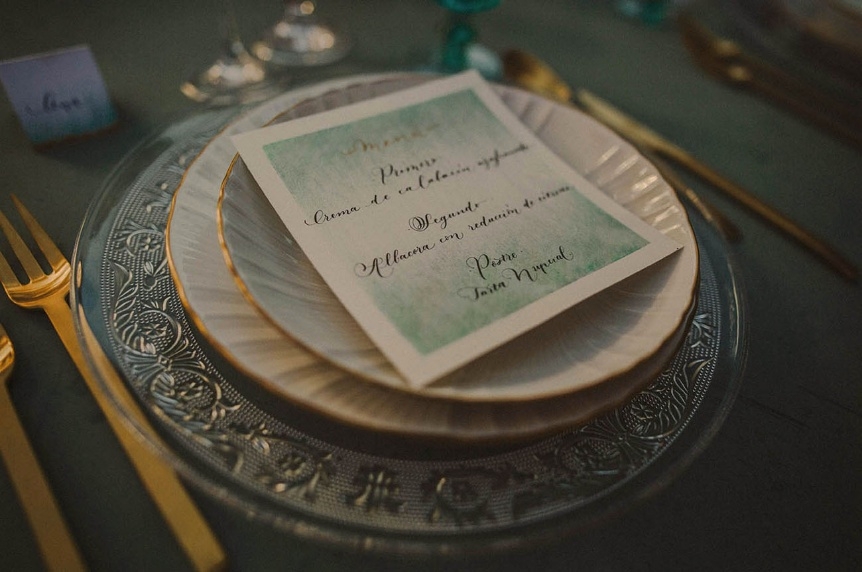 Menú
Primero
Crema de calabacín
Segundo
con reducción de cítricos
Postre
Tarta Nupcial